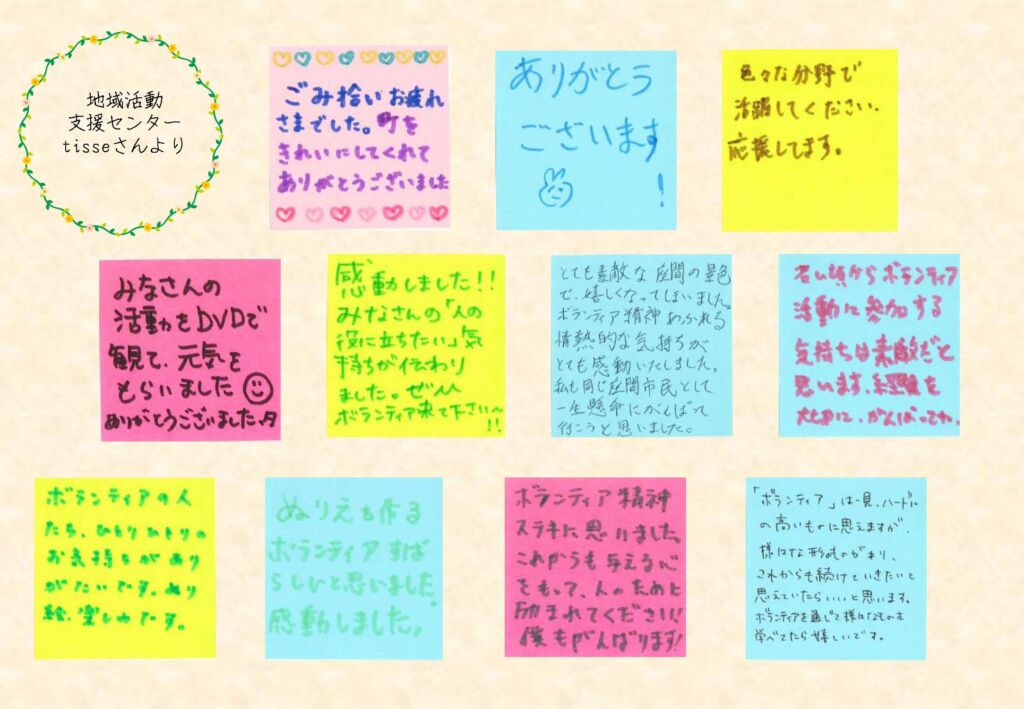 地域活動
支援センター
tisseさんより
ごみ拾いお疲れ
さまでした。町を
きれいにしてくれて
ありがとうございました
ありがとう
ございます
!
色々な分野で
活躍してください。
応援してます。
みなさんの
活動をDVDで
観て、元気を
もらいました
ありがとうございました。
感動しました!!
みなさんの「人の
役に立ちたい」気
持ちが伝わり
ました。ぜひ
ボランティア来て下さい〜
!!
とても素敵な座間の景色
で、嬉しくなってしまいました。
ボランティア精神あふれる
情熱的な気持ちが
とても感動いたしました。
私も同じ座間市民として
一生懸命にがんばって
行こうと思いました。
若い頃からボランティア
活動に参加する
気持ちは素敵だと
思います。経験を
大切に、がんばってね。
ボランティアの人
たち、ひとりひとりの
お気持ちがあり
がたいです。ぬり
絵、楽しみです。
ぬりえも作る
ボランティアすば
らしいと思いました。
感動しました。
ボランティア精神
ステキに思いました。
これからも与える心
をもって、人のために
励まれてください!!
僕もがんばります!
「ボランティア」は一見、ハードル
の高いものに思えますが、
様々な形のものがあり、
これからも続けていきたいと
思えていたらいいと思います。
ボランティアを通じて様々なものを
学べてたら嬉しいです。